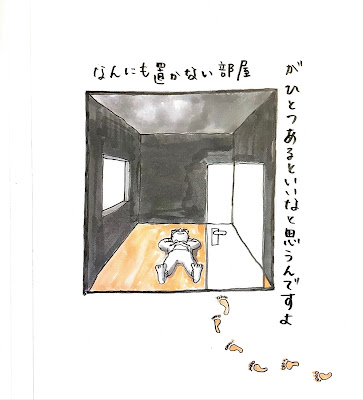 なんにも置かない部屋
がひとつあるといいなと思うんですよ